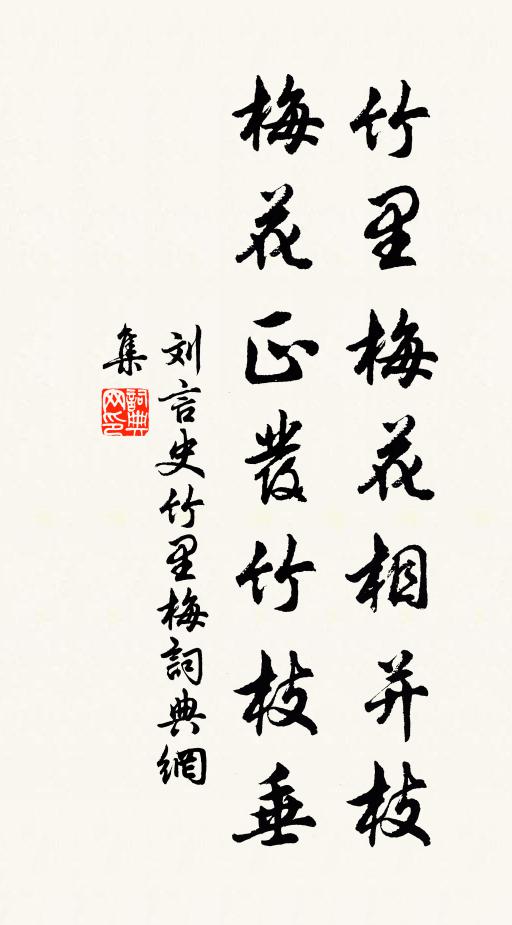 竹里梅花相并枝
梅花正發竹枝垂
刘言史竹里梅詞典網
集
詞典
网印